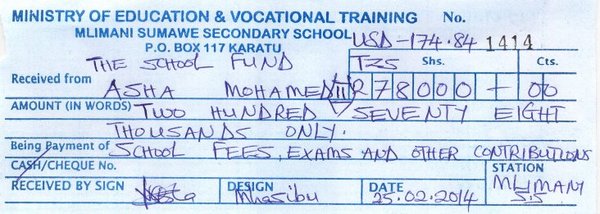 MINISTRY OF EDUCATION & VOCATIONAL TRAINING No.
MLIMANI SUMAWE SECONDARY SCHOOL
P.O. BOX 117 KARATU USD-174.84 1414
THE SCHOOL FUND TZS Shs. Cts.
Received from ASHA MOHAMED III 278000 - 00
AMOUNT (IN WORDS) TWO HUNDRED SEVENTY EIGHT
THOUSANDS ONLY.
Being Payment of SCHOOL FEES, EXAMS AND OTHER CONTRIBUTIONS
CASH/CHEQUE No. STATION
RECEIVED BY SIGN DESIGN Mhasibu DATE 25.02.2014 MLIMANI S.S